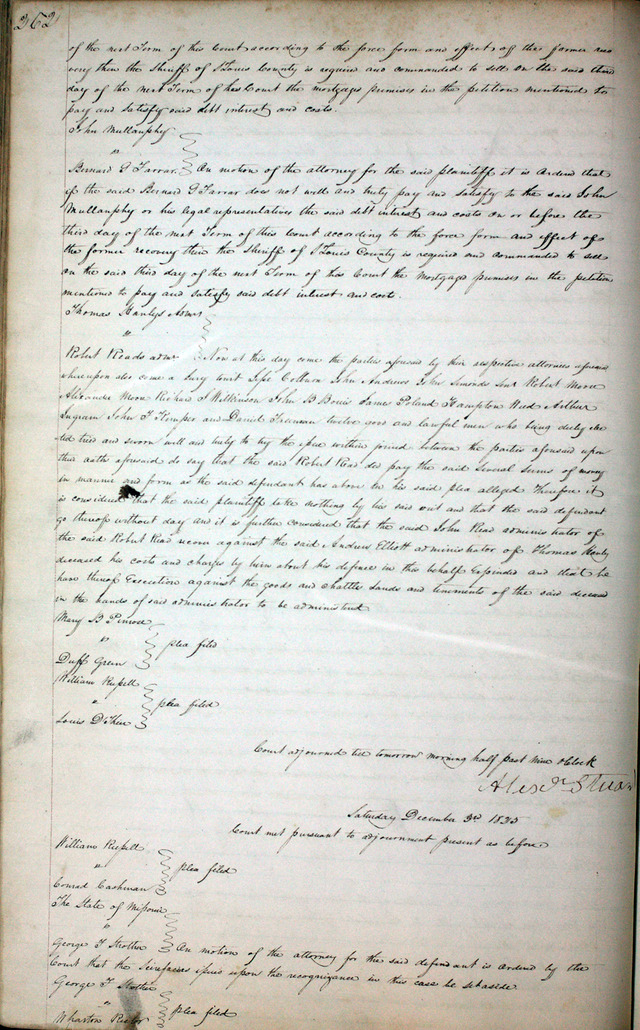 262
of the next Term of this Court according to the force form and effect of the former reco
very then the Sheriff of St Louis County is required and commanded to sell on the said third
day of the next Term of this Court the mortgaged premises in the petition mentioned to
pay and satisfy said debt interest and costs.
John Mullanphy
"
Bernard G Farrar. On motion of the attorney for the said plaintiff it is ordered that
if the said Bernard G Farrar does not well and truly pay and satisfy to the said John
Mullanphy or his legal representatives the said debt interest and costs on or before the
third day of the next Term of this Court according to the force form and effect of
the former recovery then the Sheriff of St Louis County is required and commanded to sell
on the said third day of the next Term of this Court the Mortgaged premises in the petition
mentioned to pay and satisfy said debt interest and costs.
Thomas Hanlys Admr
"
Robert Reads admr Now at this day come the parties aforesaid by their respective attornies aforesaid
whereupon also came a Jury towit Colburn John Andrews John Simonds Robert Moore
Alexander Moore Richard Wilkinson John B Bouis James Poland Hampton Weed Arthur
Ingram John T Kemper and David Freeman twelve good and lawful men who being duly elec
ted tried and sworn well and truly to try the issue within joined between the parties aforesaid upon
their oaths aforesaid do say that the said Robert Read did pay the said Several Sums of money
in manner and form as the said defendant has above in his said plea alleged Therefore it
is considered that the said plaintiff take nothing by his said suit and that the said defendant
go thereof without day and it is further considered that the said John Read administrator of
the said Robert Read recover against the said Andrew Elliott administrator of Thomas Hanly
deceased his costs and charges by him about his defence in this behalf Expended and that he
have thereof Execution against the goods and chattles Lands and tenements of the said deceased
in the hands of said administrator to be administered
Mary B Penrose
" plea filed
Duff Green
William Russell
" plea filed
Louis
Court adjourned till tomorrow morning half past Nine oClock
Alexr Stuart
Saturday December 3d 1825
Court met pursuant to adjournment present as before
William Russell
" plea filed
Conrad Cashman
The State of Missouri
"
George F Strother On motion of the attorney for the said defendant is ordered by the
Court that the Scirefacias issued upon the recognizance in this case be setaside
George F Strother
" plea filed
Wharton Rector